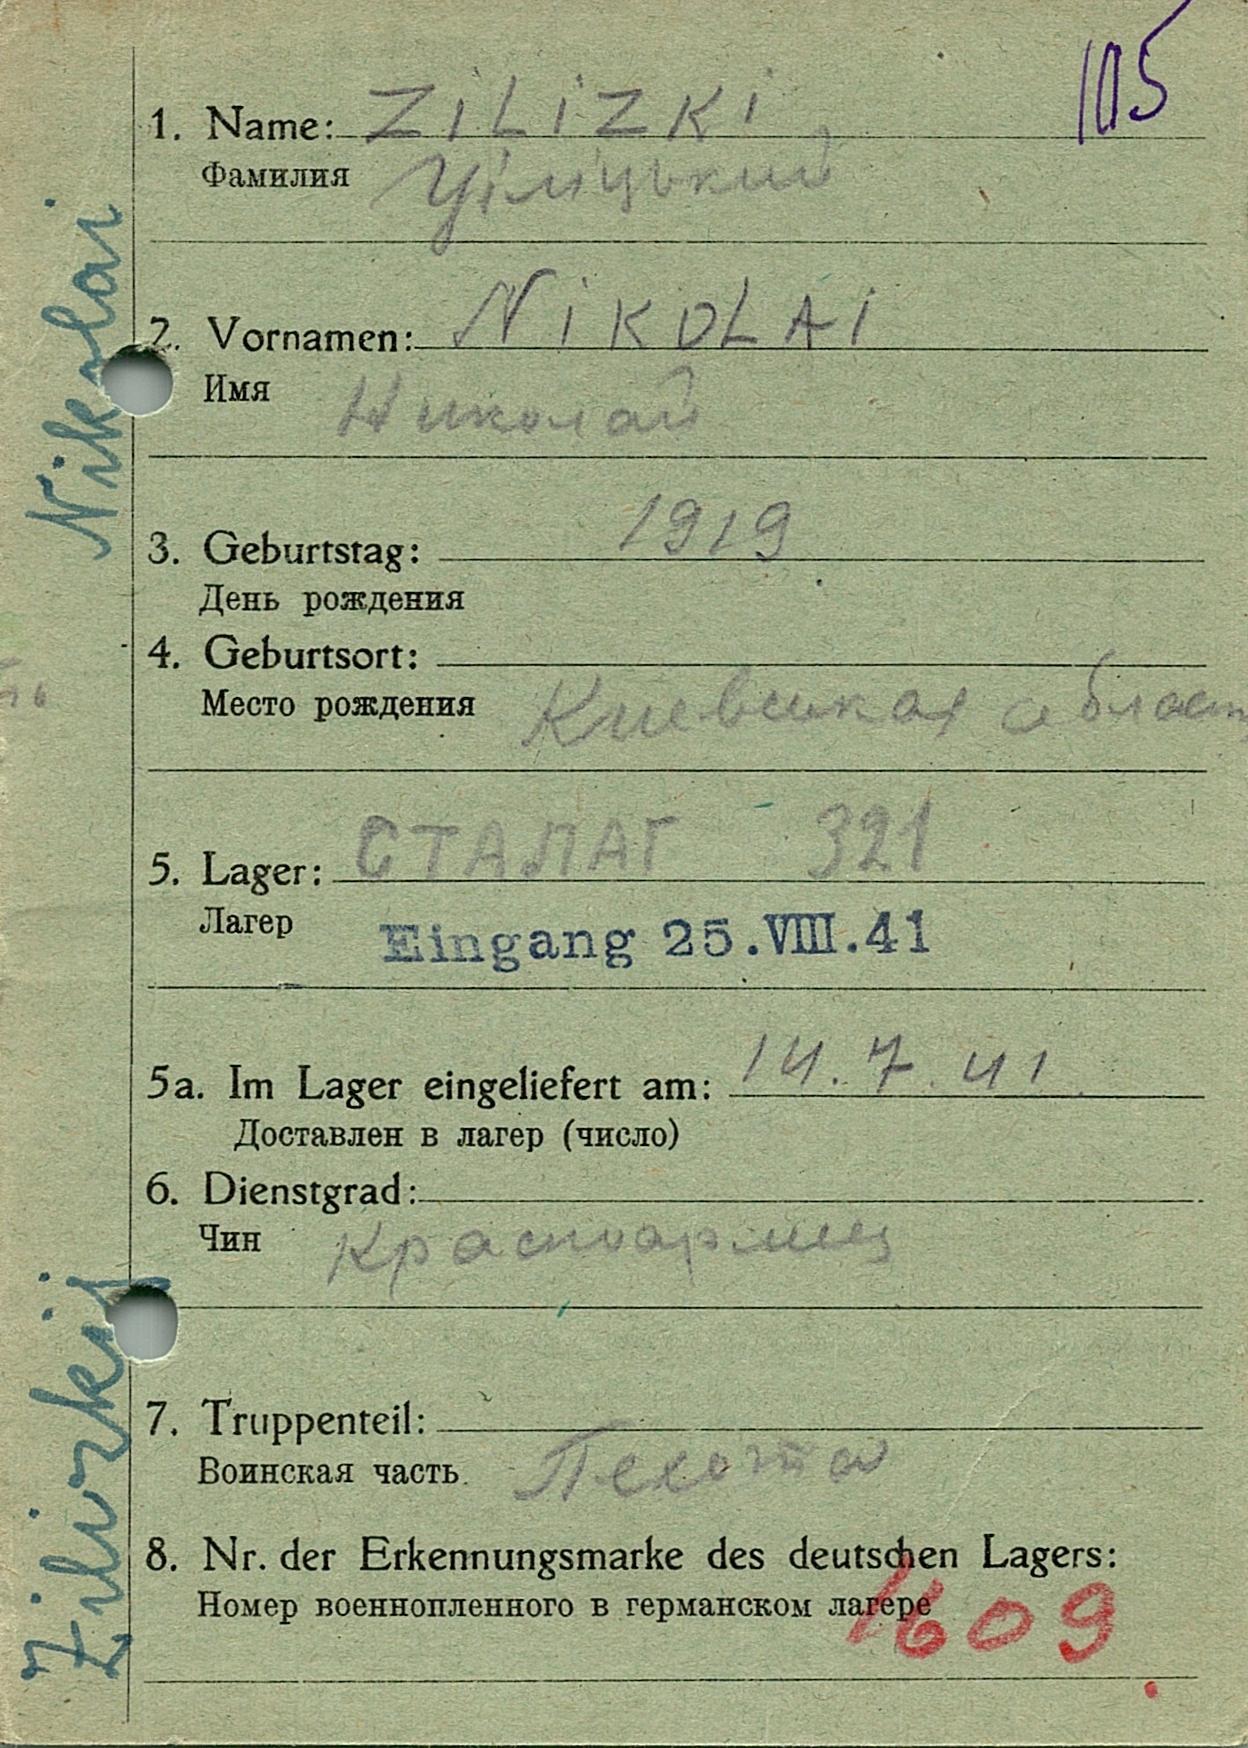 105
1. Name: ZILIZKI
Фамилия Ціліцький
2. Vornamen: NIKOLAI
Имя Николай
3. Geburtstag: 1919
День рождения
4. Geburtsort:
Место рождения Киевская област
5. Lager: СТАЛАГ 321
Лагер Eingang 25.VIII.41
5a. Im Lager eingeliefert am: 14.7.41
Доставлен в лагер (число)
6. Dienstgrad:
Чин Красноармеец
7. Truppenteil:
Воинская часть. Пехота
8. Nr. der Erkennungsmarke des deutschen Lagers:
Номер военнопленного в германском лагере 1609
Zilizkij Nikolai